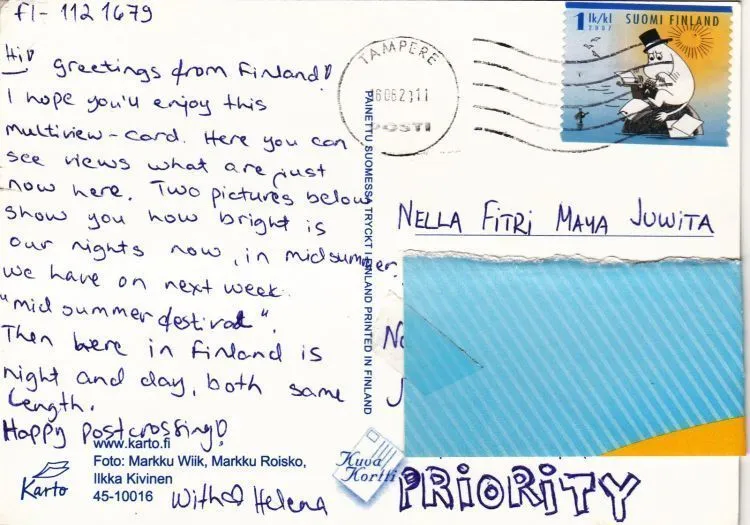 FI- 1121679
Hi! greetings from Finland!
I hope you'll enjoy this
multiview-card. Here you can
see views what are just
now here. Two pictures below
show you how bright is
our nights now, in midsummer.
we have on next week
"mid summer festival".
Then here in Finland is
night and day, both same
length.
Happy postcrossing!
www.karto.fi
Foto: Markku Wiik, Markku Roisko,
Ilkka Kivinen
45-10016
Karto
With Helena
PAINETTU SUOMESSA TRYCKT I FINLAND PRINTED IN FINLAND
Kuva
Kortti
TAMPERE
POSTI
1 lk/kl
2007
SUOMI FINLAND
NELLA FITRI MAYA JUWITA
PRIORITY